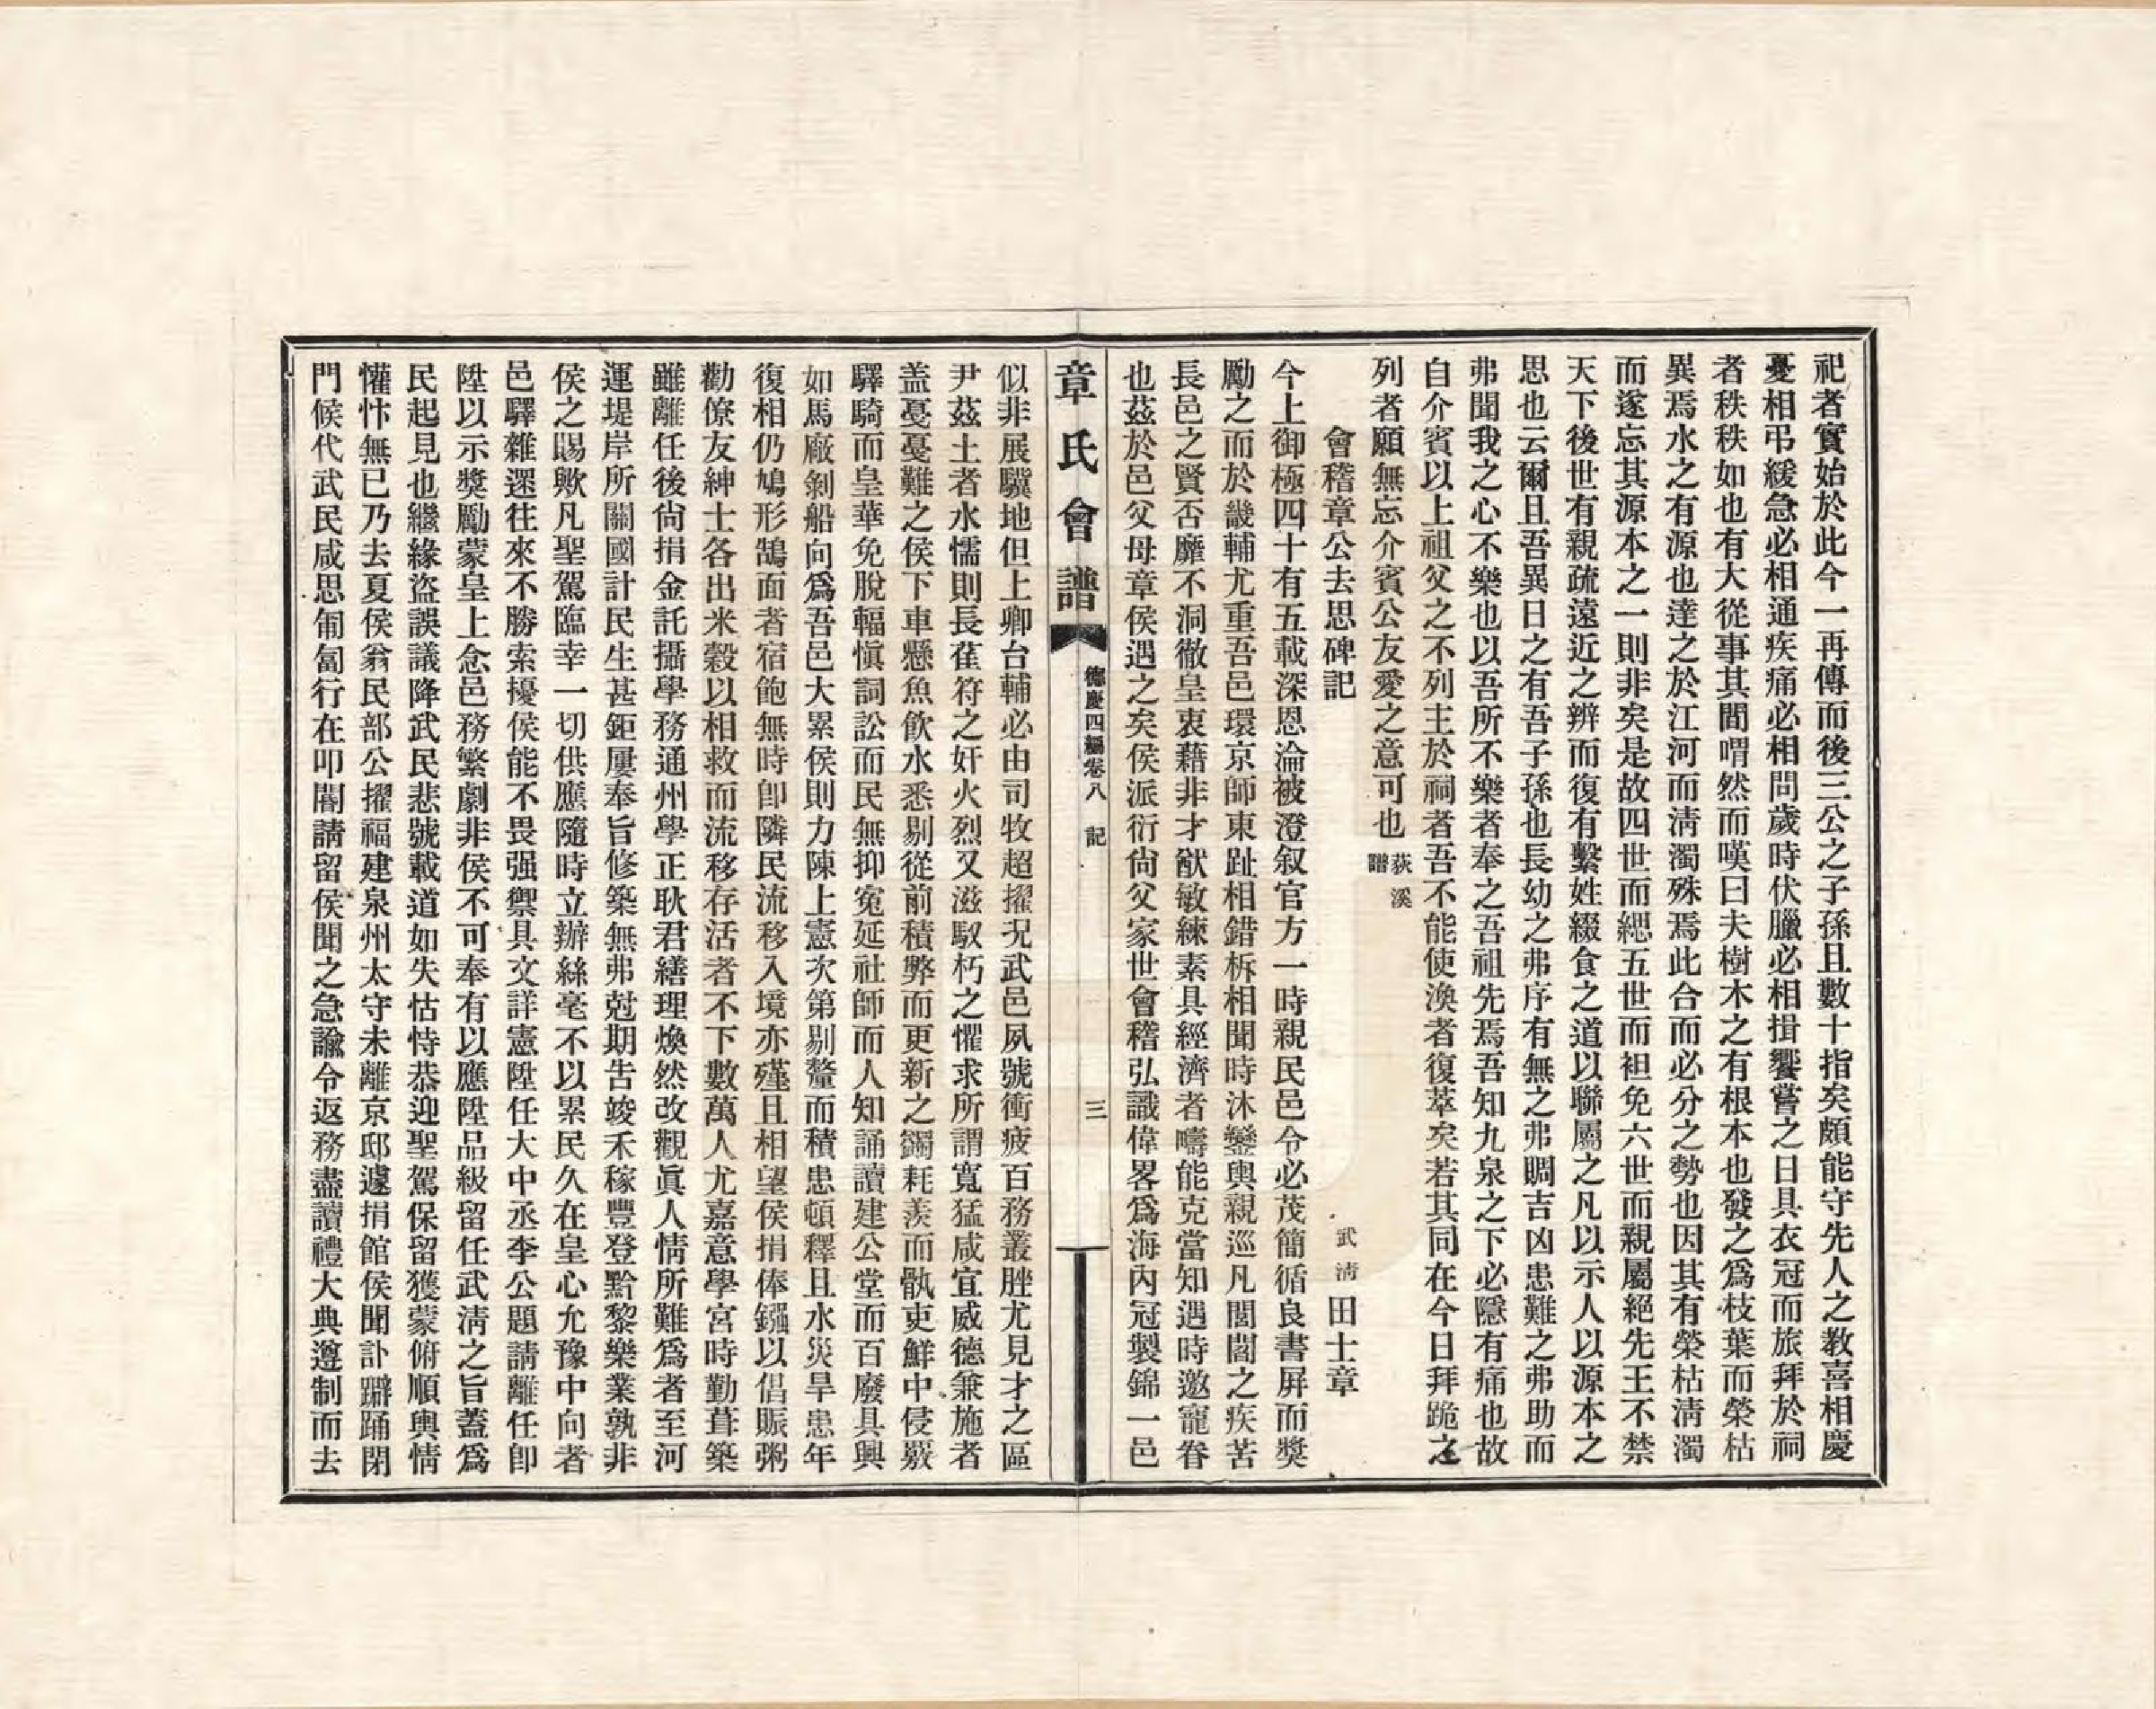 祀者實始於此今一再傳而後三公之子孫且數十指矣頗能守先人之教喜相慶
憂相弔緩急必相通疾痛必相問歲時伏臘必相揖饗嘗之日具衣冠而旅拜於祠
者秩秩如也有大從事其間喟然而嘆曰夫樹木之有根本也發之爲枝葉而榮枯
異焉水之有源也達之於江河而淸濁殊焉此合而必分之勢也因其有榮枯淸濁
而遂忘其源本之一則非矣是故四世而緦五世而袒免六世而親屬絕先王不禁
天下後世有親疏遠近之辨而復有繫姓綴食之道以聯屬之凡以示人以源本之
思也云爾且吾異日之有吾子孫也長幼之弗序有無之弗賙吉凶患難之弗助而
弗聞我之心不樂也以吾所不樂者奉之吾祖先焉吾知九泉之下必隱有痛也故
自介賓以上祖父之不列主於祠者吾不能使渙者復萃矣若其同在今日拜跪之
列者願無忘介賓公友愛之意可也荻溪譜
會稽章公去思碑記　武淸田士章
今上御極四十有五載深恩淪被澄叙官方一時親民邑令必茂簡循良書屏而獎
勵之而於畿輔尤重吾邑環京師東趾相錯柝相聞時沐鑾輿親巡凡閭閻之疾苦
長邑之賢否靡不洞徹皇衷藉非才猷敏練素具經濟者疇能克當知遇時邀寵眷
也茲於邑父母章侯遇之矣侯派衍尙父家世會稽弘識偉畧爲海內冠製錦一邑
章氏會譜　德慶四編卷八　記　三
似非展驥地但上卿台輔必由司牧超擢況武邑夙號衝疲百務叢脞尤見才之區
尹茲土者水懦則長萑苻之奸火烈又滋馭朽之懼求所謂寬猛咸宜威德兼施者
盖戞戞難之侯下車懸魚飮水悉剔從前積弊而更新之蠲耗羨而骩吏鮮中侵覈
驛騎而皇華免脫輻愼詞訟而民無抑寃延社師而人知誦讀建公堂而百廢具興
如馬廠剝船向爲吾邑大累侯則力陳上憲次第剔釐而積患頓釋且水災旱患年
復相仍鳩形鵠面者宿飽無時卽隣民流移入境亦殣且相望侯捐俸鏹以倡賑粥
勸僚友紳士各出米穀以相救而流移存活者不下數萬人尤嘉意學宮時勤葺築
雖離任後尙捐金託攝學務通州學正耿君繕理煥然改觀眞人情所難爲者至河
運堤岸所關國計民生甚鉅屢奉旨修築無弗尅期吿竣禾稼豐登黔黎樂業孰非
侯之賜歟凡聖駕臨幸一切供應隨時立辦絲毫不以累民久在皇心允豫中向者
邑驛雜遝往來不勝索擾侯能不畏强禦具文詳憲陞任大中丞李公題請離任卽
陞以示獎勵蒙皇上念邑務繁劇非侯不可奉有以應陞品級留任武淸之旨蓋爲
民起見也繼緣盜誤議降武民悲號載道如失怙恃恭迎聖駕保留獲蒙俯順輿情
懽忭無已乃去夏侯翁民部公擢福建泉州太守未離京邸遽捐館侯聞訃躃踊閉
門候代武民咸思匍匐行在叩閽請留侯聞之急諭令返務盡讀禮大典遵制而去